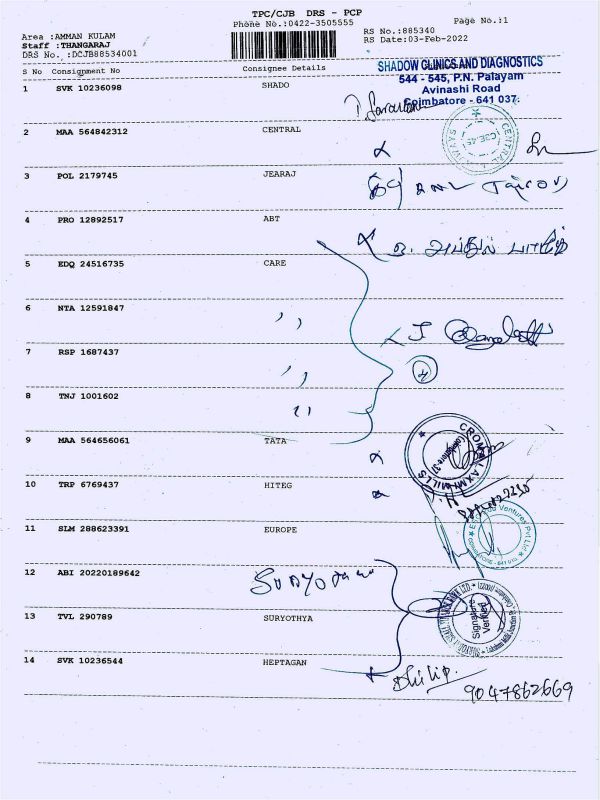 TPC/CJB DRS - PCP
Phone No.:0422-3505555
Page No.:1
Area :AMMAN KULAM
Staff :THANGARAJ
DRS No. :DCJB88534001
RS No.:885340
RS Date:03-Feb-2022
S No Consignment No Consignee Details
SHADOW CLINICS AND DIAGNOSTICS
544 - 545, P.N. Palayam
Avinashi Road
Coimbatore - 641 037.
1 SVK 10236098 SHADO
2 MAA 564842312 CENTRAL
CENTRAL
3 POL 2179745 JEARAJ
4 PRO 12892517 ABT
5 EDQ 24516735 CARE
6 NTA 12591847 ,,
7 RSP 1687437 ,,
8 TNJ 1001602 ,,
9 MAA 564656061 TATA
10 TRP 6769437 HITEG
11 SLM 288623391 EUROPE
Ventures Pvt Ltd
12 ABI 20220189642
13 TVL 290789 SURYOTHYA
Signature
Verified
14 SVK 10236544 HEPTAGAN
Philip.
9047862669